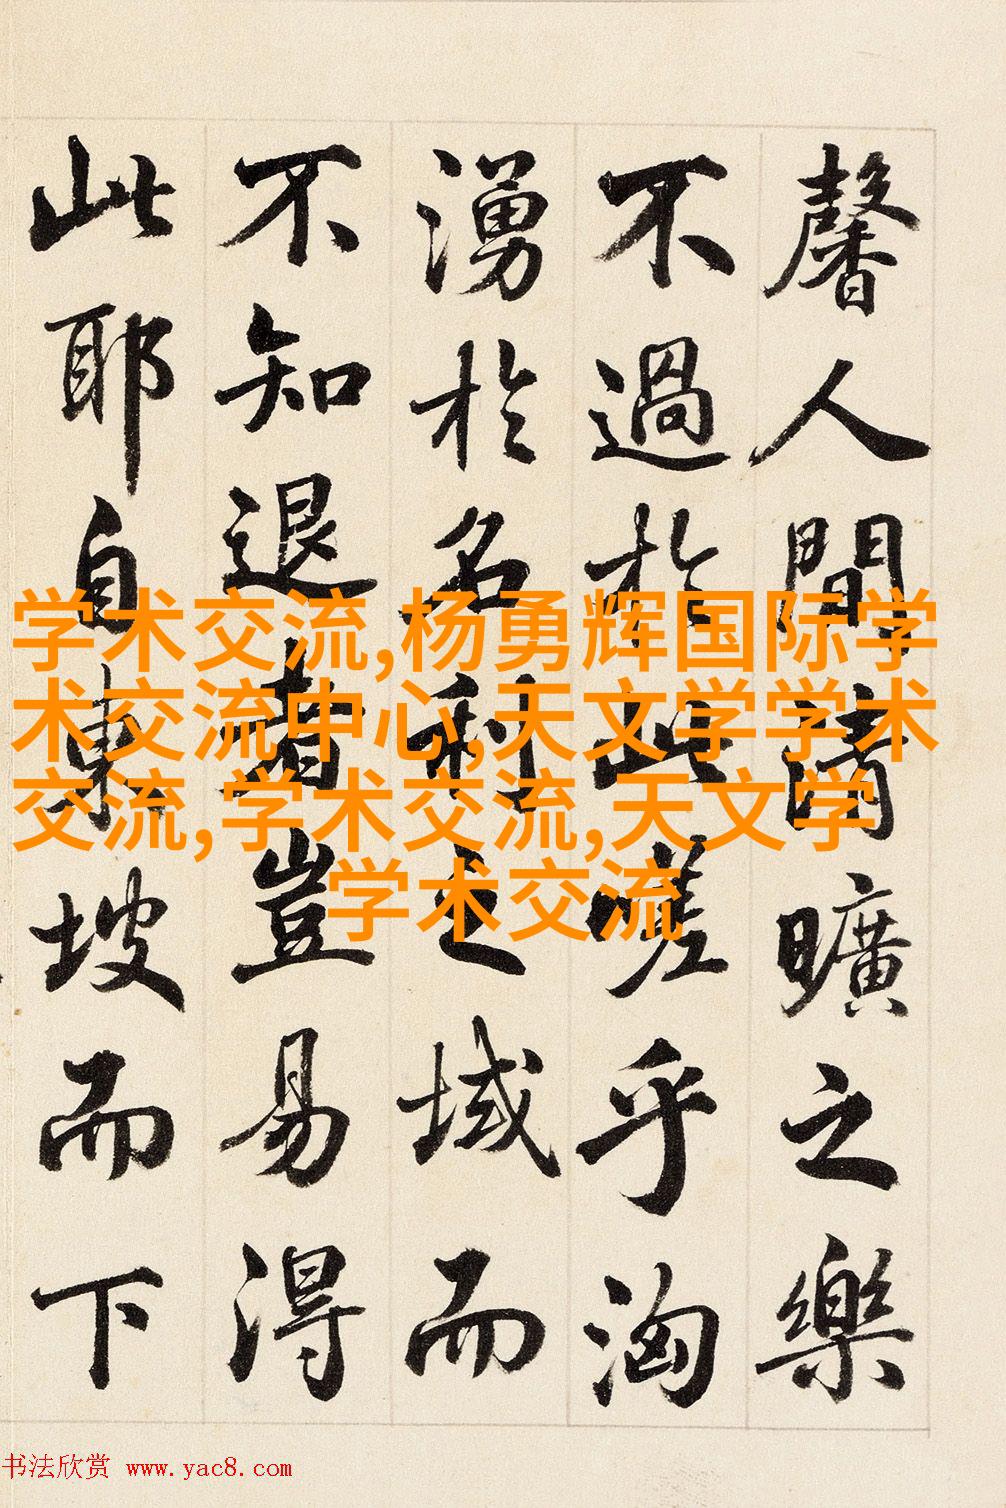 馨人間清曠之樂
不過於此嗟乎洶
湧於名利之域而
不知退者豈易得
此耶自東坡而下
学术交流,杨勇辉国际学
术交流中心,天文学学术
交流,学术交流,天文学
学术交流
书法欣赏 www.yac8.com